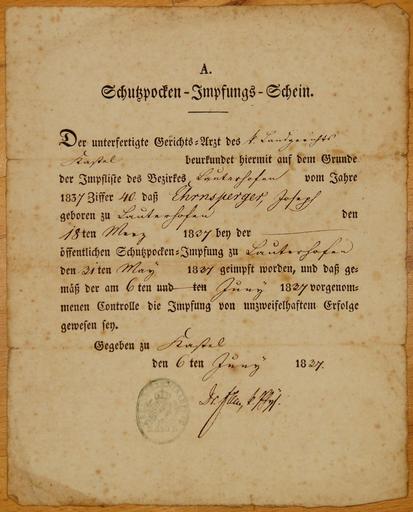 A.
Schutzpocken-Impfungs-Schein.
Der unterfertigte Gerichts-Arzt des k. Landgerichts
Kastel beurkundet hiermit auf dem Grunde
der Impfliste des Bezirkes Lauterhofen vom Jahre
1837 Ziffer 40 daß Ehrnsperger, Joseph
geboren zu Lauterhofen den
18ten Merz 1837 bey der
öffentlichen Schutzpocken-Impfung zu Lauterhofen
den 31ten May 1837 geimpft worden, und daß ge-
mäß der am 6ten und ten Juny 1837 vorgenom-
menen Controlle die Impfung von unzweifelhaftem Erfolge
gewesen sey.
Gegeben zu Kastel
den 6ten Juny 1837.
Dr.